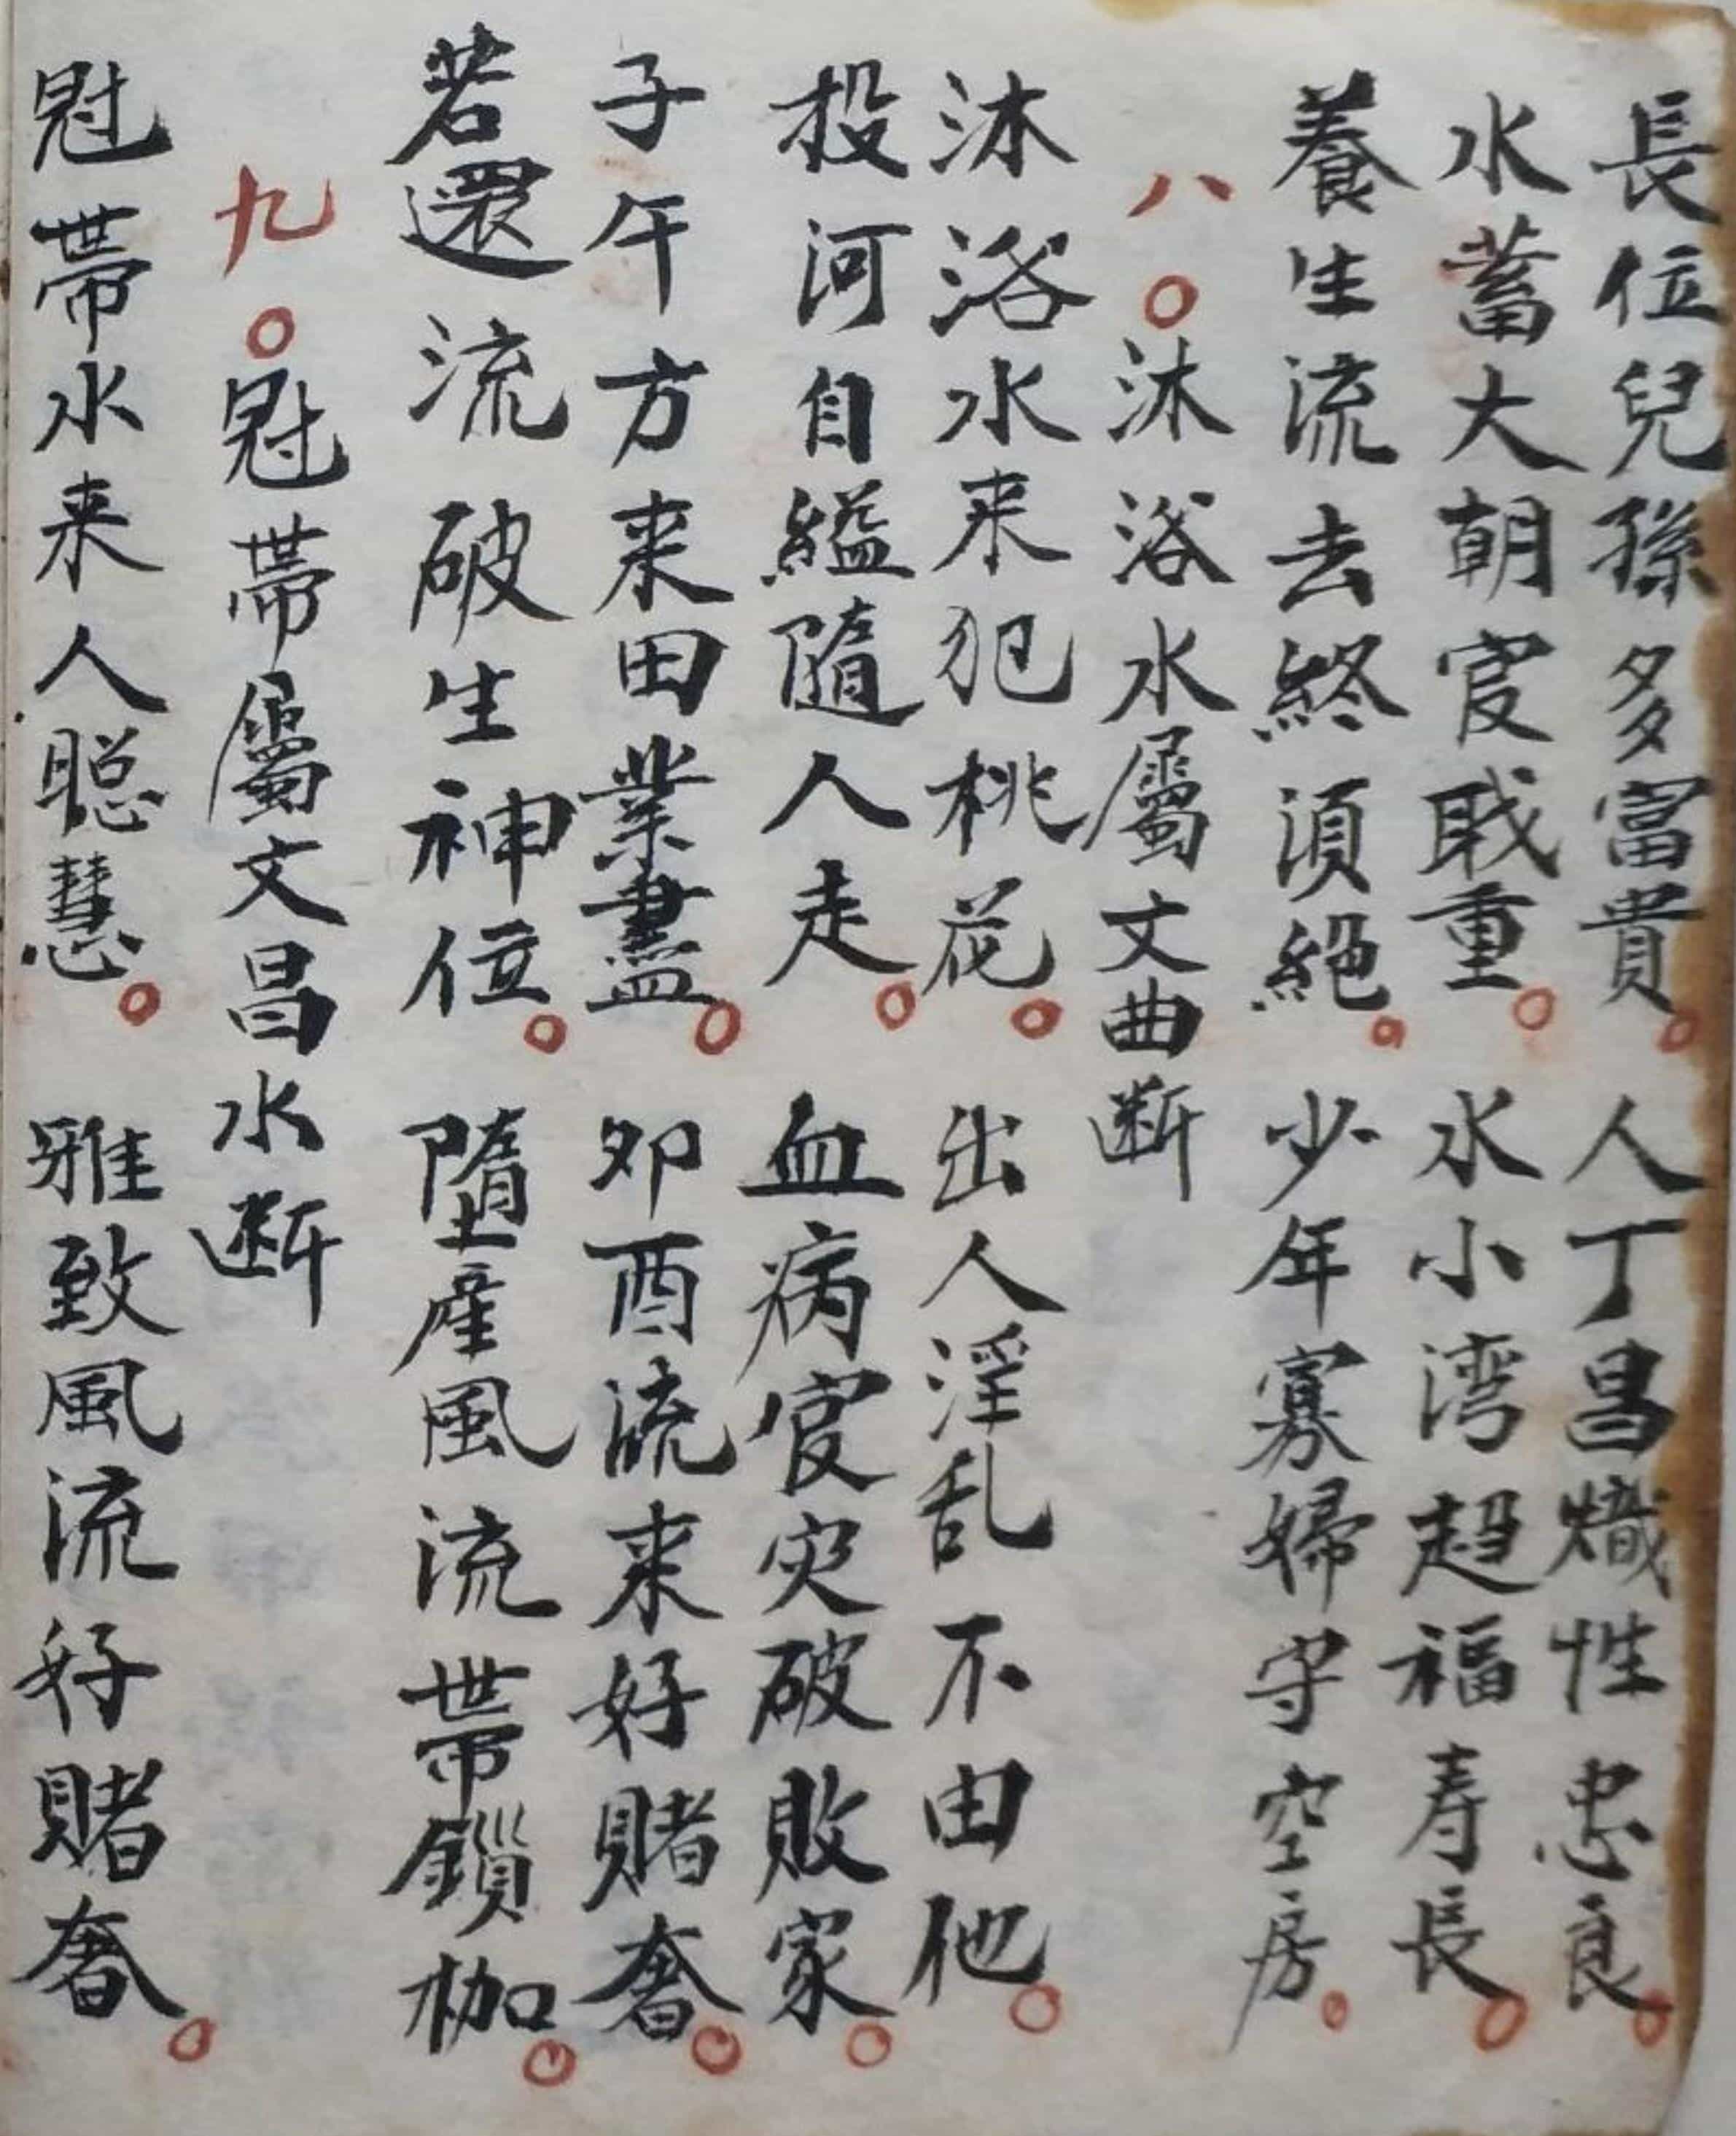 長位兒孫多富貴。人丁昌熾性忠良。
水蓄大朝官戢重。水小湾超福寿長。
養生流去終須絕。少年寡婦守空房。
八〇沐浴水屬文曲断
沐浴水来犯桃花。出人淫乱不由他。
投河自縊隨人走。血病官灾破敗家。
子午方来田業盡。卯酉流来好賭奢。
若還流破生神位。墮產風流帶鎖枷。
九〇冠帶屬文昌水断
冠帶水来人聪慧。雅致風流好賭奢。